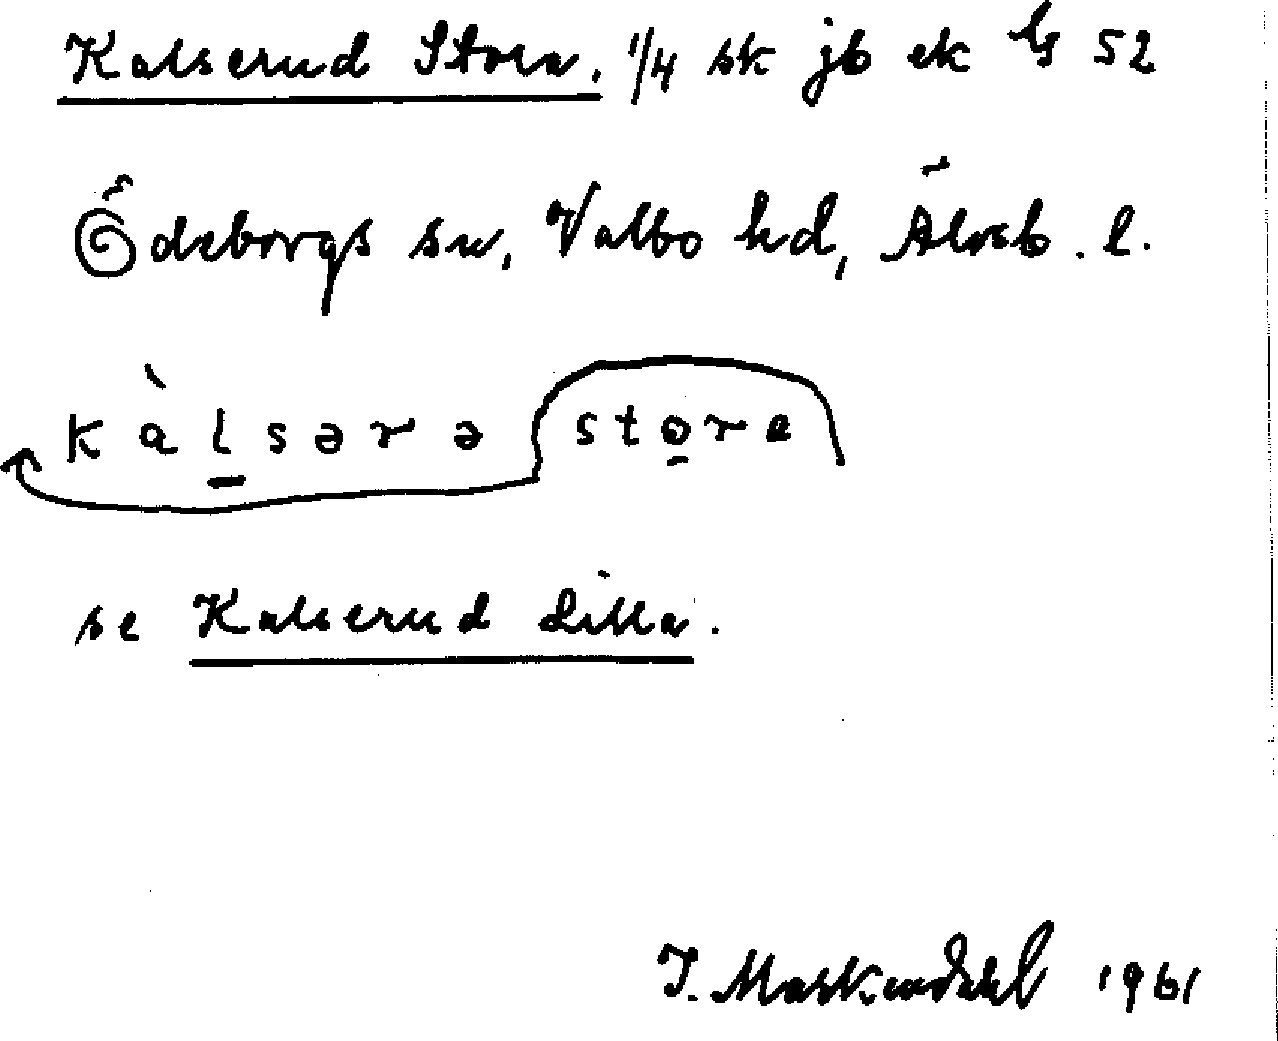 Kalserud Stora. 1/4 sk jb ek G 52
Ödeborgs sn, Valbo hd, Älvsb. l.
kàlsərə store
se Kalserud Lilla.
1961